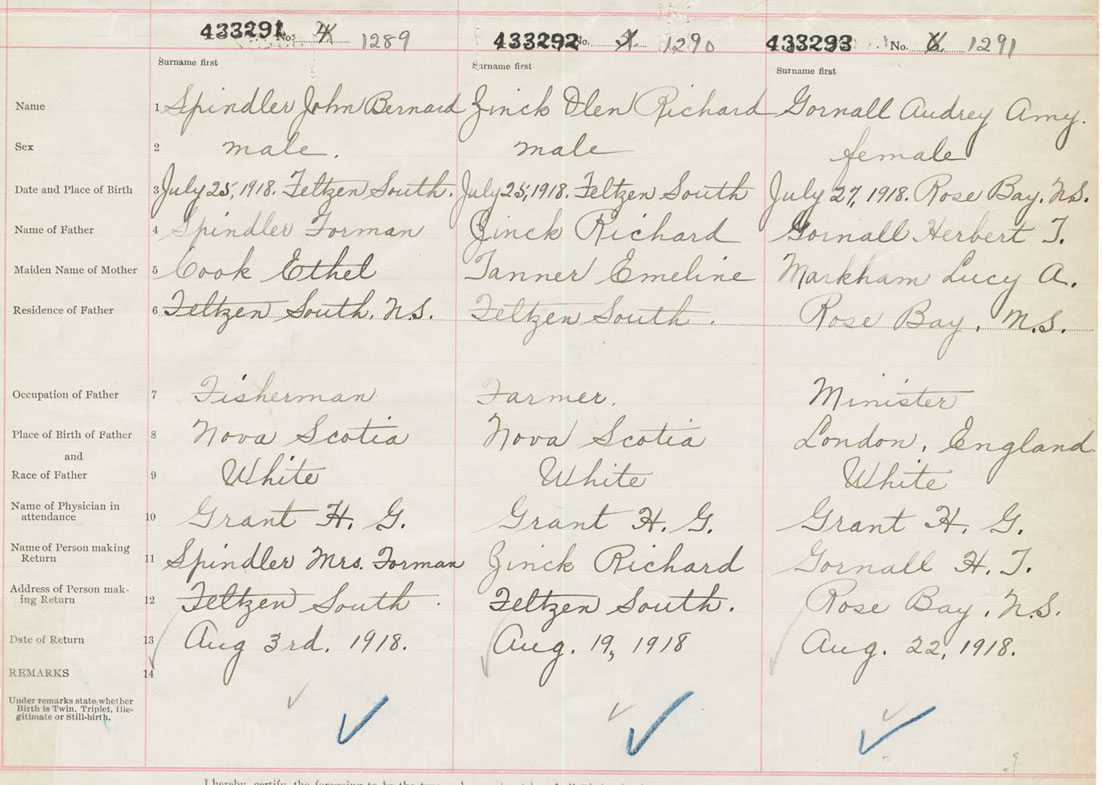 433291 No. 4 1289 433292 No. 5 1290 433293 No. 6 1291
Surname first Surname first Surname first
Name 1 Spindler John Bernard Zinck Olen Richard Gornall Audrey Amy.
Sex 2 male. male female
Date and Place of Birth 3 July 25, 1918. Feltzen South. July 25, 1918. Feltzen South July 27, 1918. Rose Bay. N.S.
Name of Father 4 Spindler Forman Zinck Richard Gornall Herbert T.
Maiden Name of Mother 5 Cook Ethel Tanner Emeline Markham Lucy A.
Residence of Father 6 Feltzen South. N.S. Feltzen South. Rose Bay, N.S.
Occupation of Father 7 Fisherman Farmer. Minister
Place of Birth of Father 8 Nova Scotia Nova Scotia London, England
and
Race of Father 9 White White White
Name of Physician in
attendance 10 Grant H. G. Grant H. G. Grant H. G.
Name of Person making
Return 11 Spindler Mrs. Forman Zinck Richard Gornall H. T.
Address of Person mak-
ing Return 12 Feltzen South. Feltzen South. Rose Bay, N.S.
Date of Return 13 Aug 3rd, 1918. Aug. 19, 1918 Aug. 22, 1918.
REMARKS 14
Under remarks state whether
Birth is Twin, Triplet, Ille-
gitimate or Still-birth.
I hereby certify the foregoing to be the